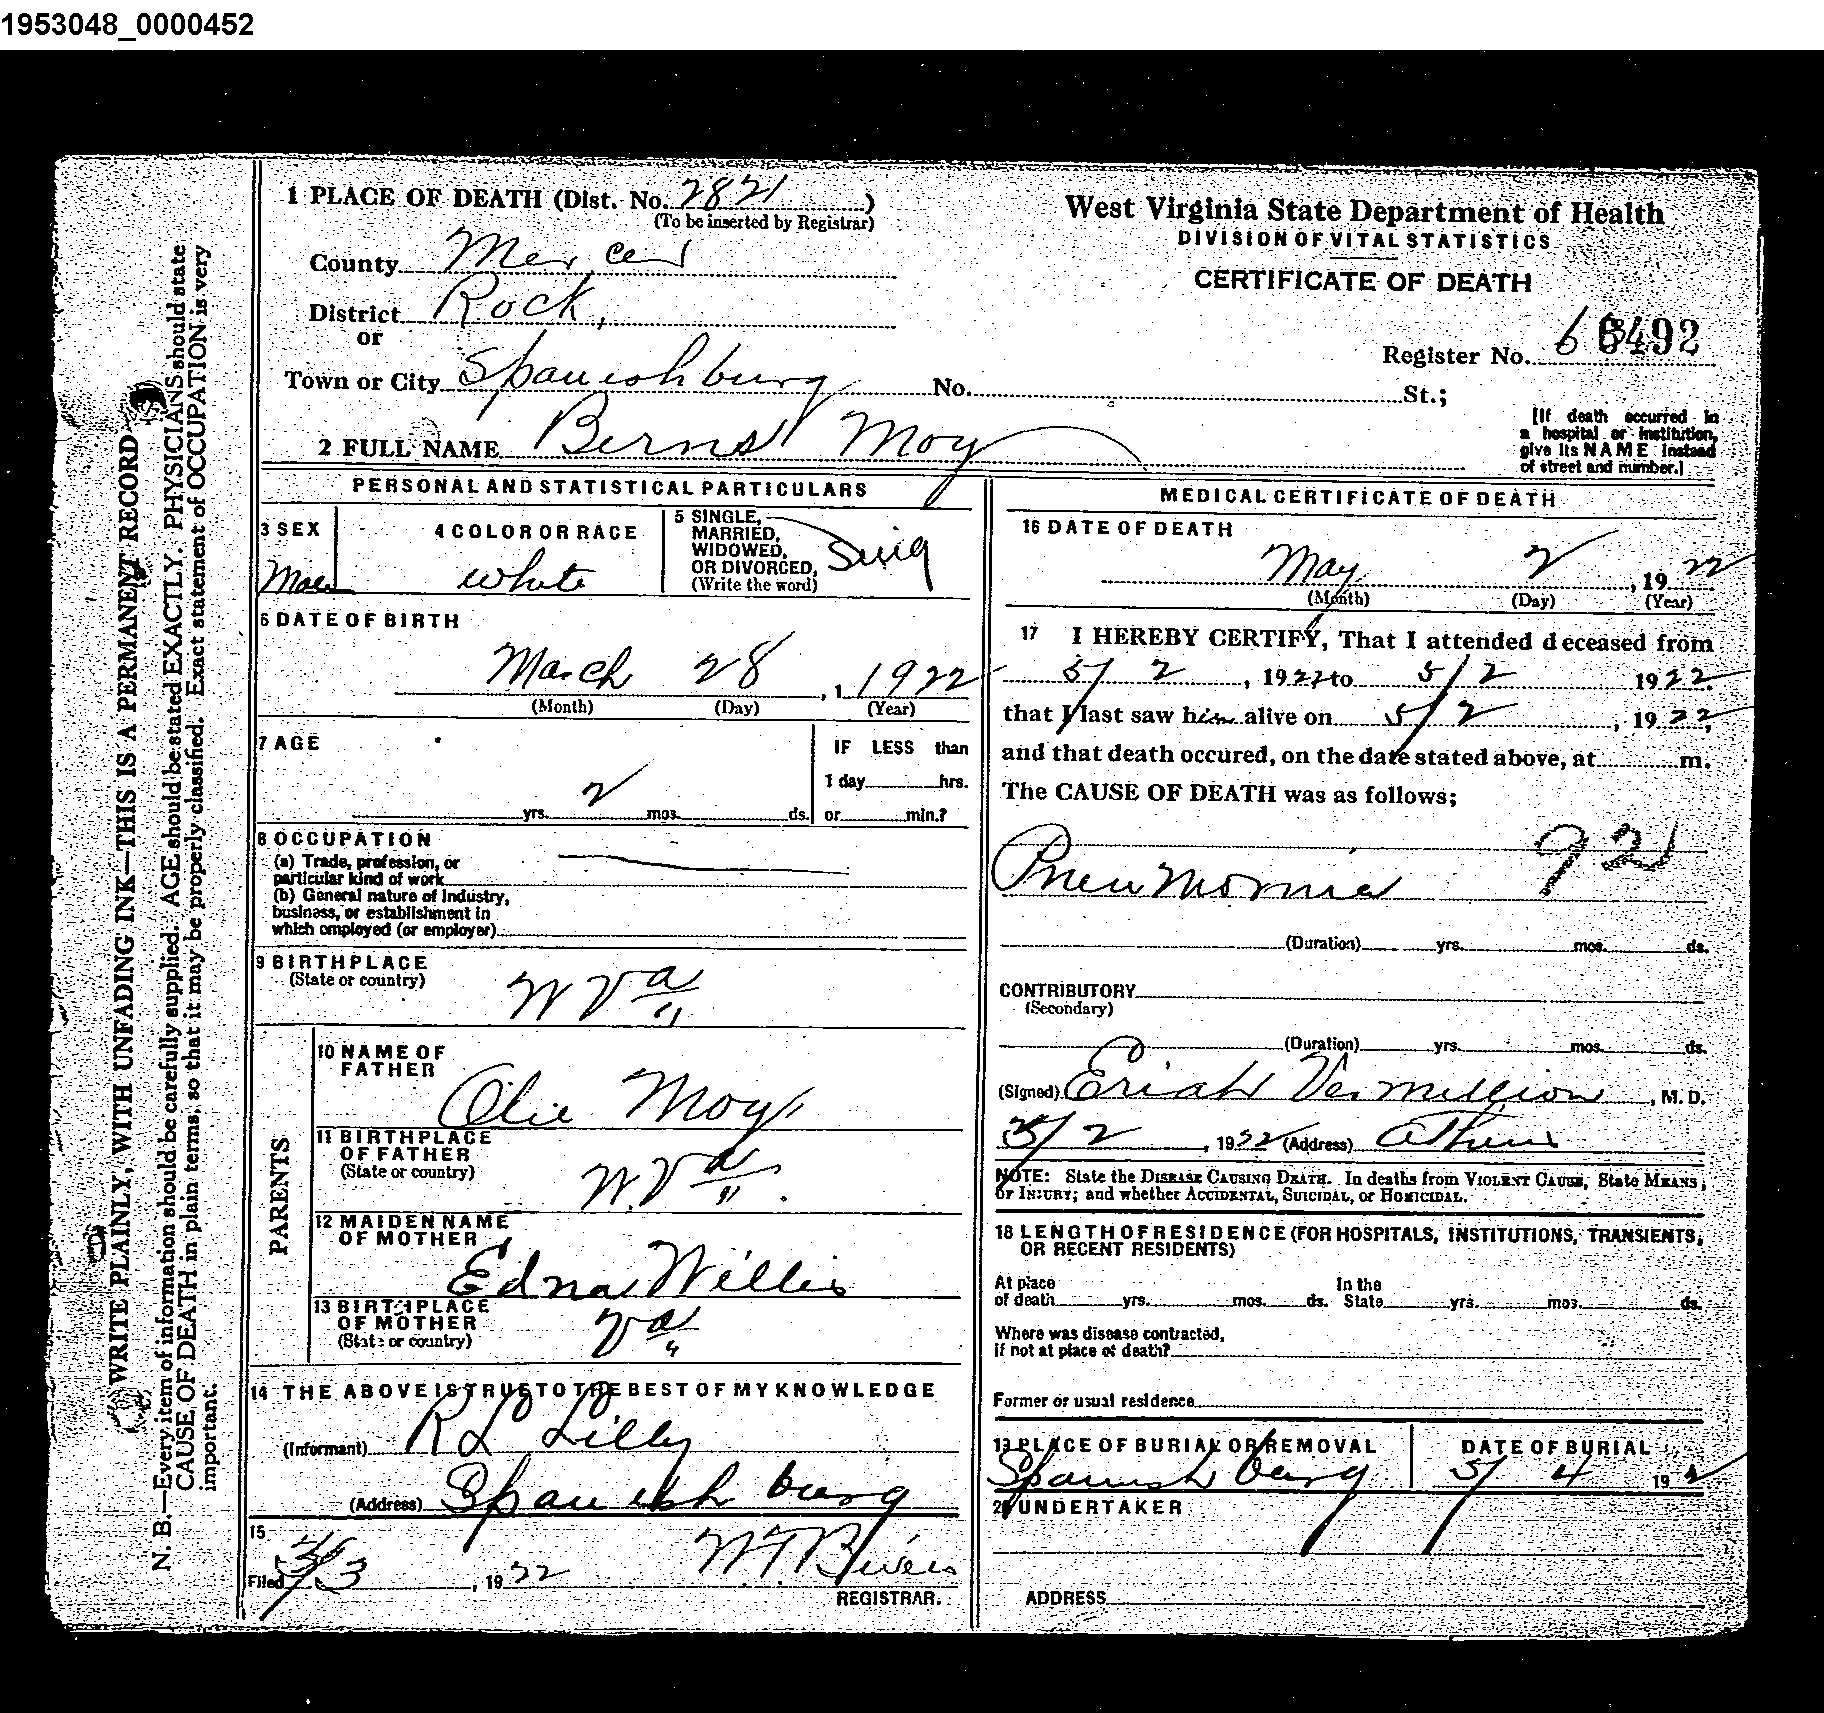 1953048_0000452
1 PLACE OF DEATH (Dist. No. 2821)
(To be inserted by Registrar)
County Mercer
District Rock,
or
Town or City Spanishburg No. St.;
2 FULL NAME Moy
West Virginia State Department of Health
DIVISION OF VITAL STATISTICS
CERTIFICATE OF DEATH
Register No. 6492
[If death occurred in
a hospital or institution,
give its NAME instead
of street and number.]
PERSONAL AND STATISTICAL PARTICULARS
3 SEX
Male
4 COLOR OR RACE
white
5 SINGLE,
MARRIED,
WIDOWED,
OR DIVORCED,
(Write the word)
Sing
6 DATE OF BIRTH
March 28, 1 1922
(Month) (Day) (Year)
7 AGE
2
yrs. mos. ds.
IF LESS than
1 day hrs.
or min.?
8 OCCUPATION
(a) Trade, profession, or
particular kind of work
(b) General nature of Industry,
business, or establishment in
which employed (or employer)
9 BIRTHPLACE
(State or country)
W Va
PARENTS
10 NAME OF
FATHER
Olie Moy
11 BIRTHPLACE
OF FATHER
(State or country)
W. Va
12 MAIDEN NAME
OF MOTHER
Edna Willis
13 BIRTHPLACE
OF MOTHER
(State or country)
Va
14 THE ABOVE IS TRUE TO THE BEST OF MY KNOWLEDGE
(Informant) R L Lilly
(Address) Spanishburg
15
Filed 5/3, 1922 W. T. Bivens
REGISTRAR.
MEDICAL CERTIFICATE OF DEATH
16 DATE OF DEATH
May 2, 1922
(Month) (Day) (Year)
17 I HEREBY CERTIFY, That I attended deceased from
5/2, 1922 to 5/2 1922.
that I last saw him alive on 5/2, 1922,
and that death occured, on the date stated above, at m.
The CAUSE OF DEATH was as follows;
92
Pneumonia
(Duration) yrs. mos. ds.
CONTRIBUTORY
(Secondary)
(Duration) yrs. mos. ds.
(Signed) Eriah Vermillion, M. D.
5/2, 1922 (Address) Athens
NOTE: State the DISEASE CAUSING DEATH. In deaths from VIOLENT CAUSE, State MEANS,
OF INJURY; and whether ACCIDENTAL, SUICIDAL, or HOMICIDAL.
18 LENGTH OF RESIDENCE (FOR HOSPITALS, INSTITUTIONS, TRANSIENTS,
OR RECENT RESIDENTS)
At place
of death yrs. mos. ds.
In the
State yrs. mos. ds.
Where was disease contracted,
if not at place of death?
Former or usual residence
19 PLACE OF BURIAL OR REMOVAL
Spanishburg
DATE OF BURIAL
5/4 192
20 UNDERTAKER
ADDRESS
WRITE PLAINLY, WITH UNFADING INK—THIS IS A PERMANENT RECORD
N. B.—Every item of information should be carefully supplied. AGE should be stated EXACTLY. PHYSICIANS should state
CAUSE OF DEATH in plain terms, so that it may be properly classified. Exact statement of OCCUPATION is very
important.